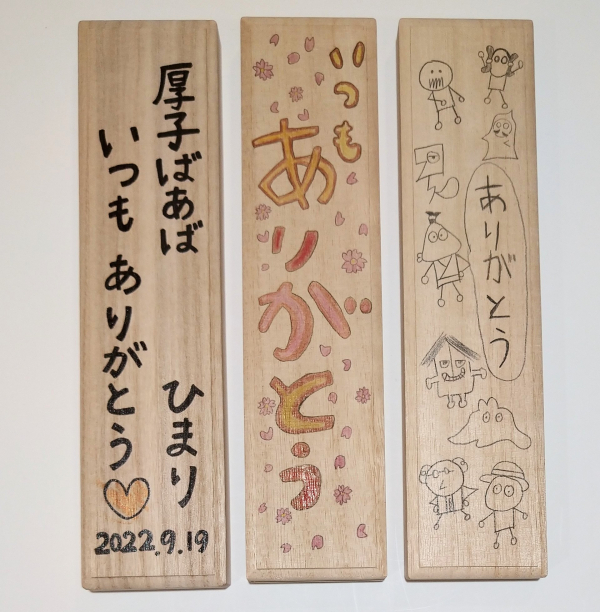 厚子ばあば
いつも ありがとう
ひまり
2022.9.19
いつも
ありがとう
ありがとう